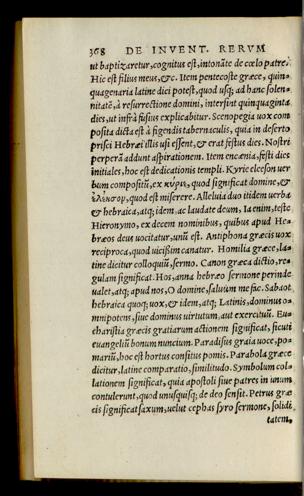 368 DE INVENT. RERVM
ut baptizaretur, cognitus est, intonãte de cœlo patre:
Hic est filius meus, &c. Item pentecoste græce, quin-
quagenaria latine dici potest, quod usq; ad hanc solen-
nitatẽ, à resurrectione domini, intersint quinquaginta
dies, ut infrà fusius explicabitur. Scenopegia uox com
posita dicta est à figendis tabernaculis, quia in deserto
prisci Hebræi illis usi essent, & erat festus dies. Nostri
perperã addunt aspirationem. Item encænia, festi dies
initiales, hoc est dedicationis templi. Kyrie eleeson uer
bum compositũ, ex κύριε, quod significat domine, &
ἐλέησον, quod est miserere. Alleluia duo itidem uerba
& hebraica, atq; idem, ac laudate deum, Ia enim, teste
Hieronymo, ex decem nominibus, quibus apud He-
bræos deus uocitatur, unũ est. Antiphona græcis uox
reciproca, quod uicissim canatur. Homilia græce, la-
tine dicitur colloquiũ, sermo. Canon græca dictio, re-
gulam significat. Hos, anna hebræo sermone perinde
ualet, atq; apud nos, O domine, saluum me fac. Sabaot
hebraica quoq; uox, & idem, atq; Latinis, dominus o-
mnipotens, siue dominus uirtutum, aut exercituũ. Eu-
charistia græcis gratiarum actionem significat, sicuti
euangeliũ bonum nuncium. Paradisus graia uoce, po-
mariũ, hoc est hortus consitus pomis. Parabola græce
dicitur, latine comparatio, similitudo. Symbolum col-
lationem significat, quia apostoli siue patres in unum
contulerunt, quod unusquisq; de deo sensit. Petrus græ
cis significat saxum, uelut cephas syro sermone, solidi
tatem,